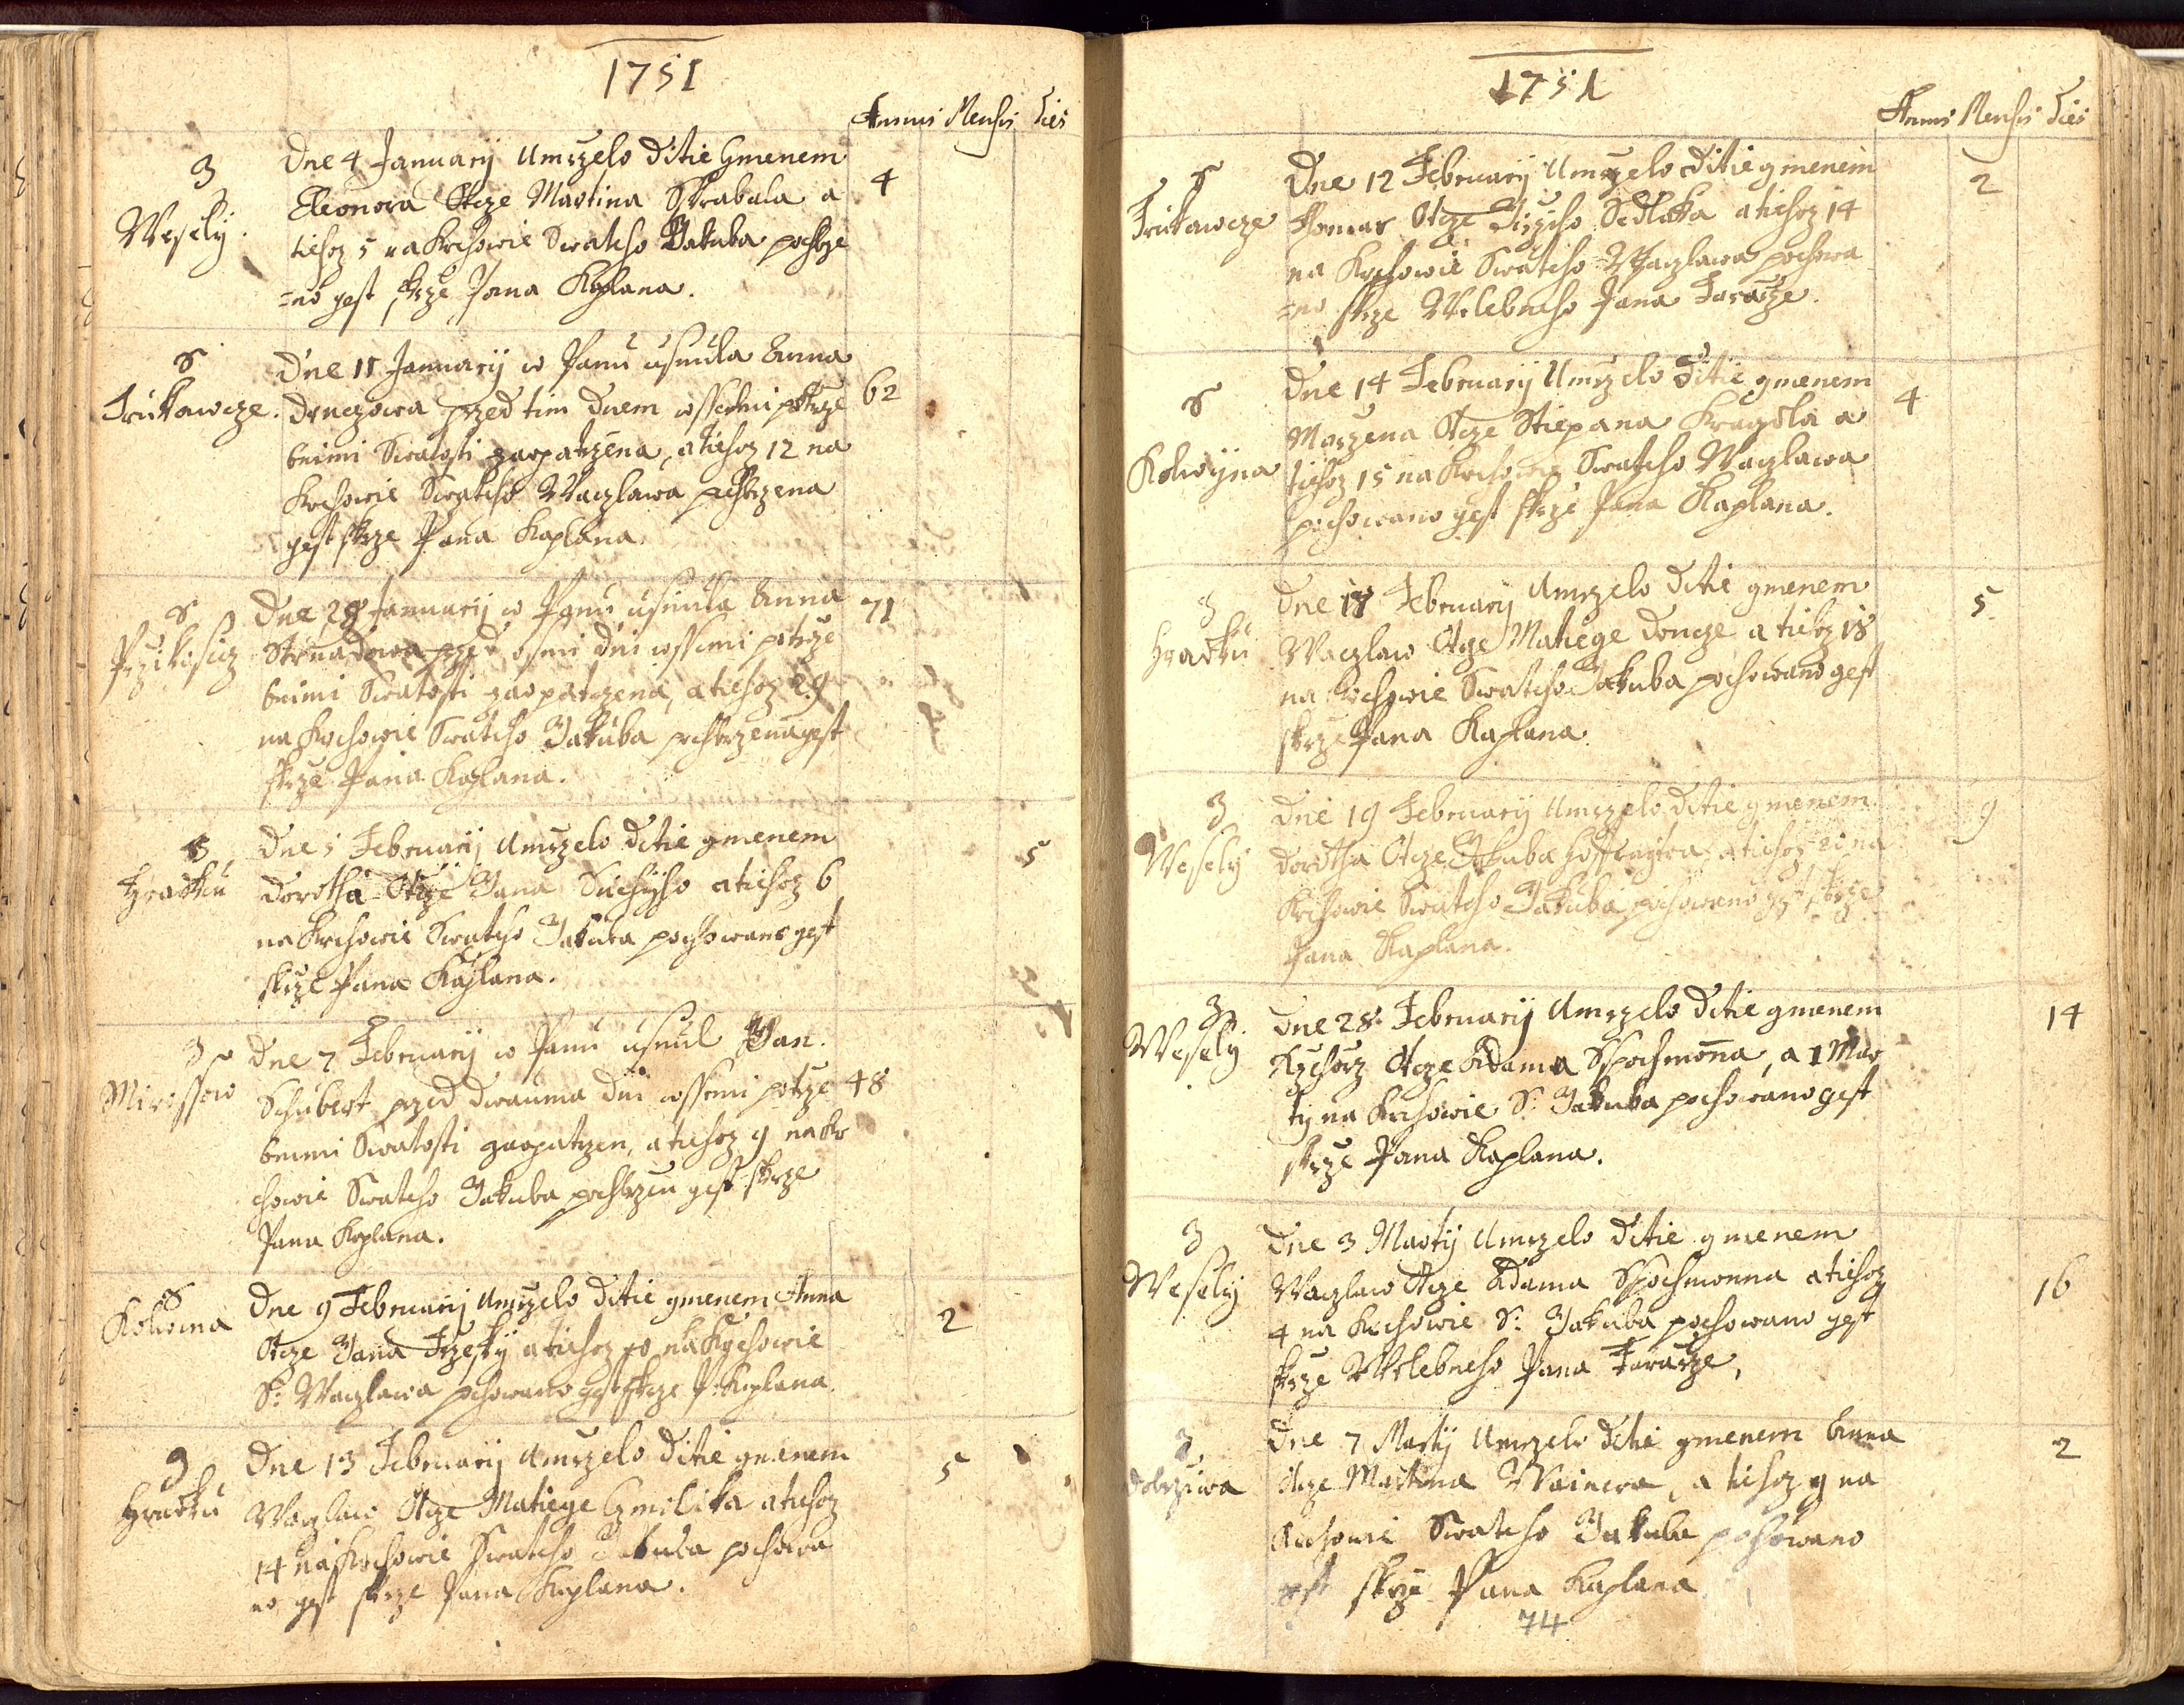 1751
Annus Mensis Dies
3
Wesely.
Dne 4 January Umrzelo Ditie Gmenem
Eleonora Otcze Martina Skrabala a
tiehoz 5 na Krchowie Swateho Jakuba pohrze
=no gest skrze Pana Kaplana.
4
S
Trnkawcze.
Dne 11 January w Panu usnula Anna
Donczowa przed tim Dnem wssemi potrze
bnimi Swatosti zaopatrzena, a tiehoz 12 na
Krchowie Swateho Waczlawa pohrzena
gest skrze Pana Kaplana
62
S
Dne 28 January w Panu usnula Anna
Strnadowa przed osmi Dni wssemi potrze
bnimi Swatosti zaopatrzena, a tiehoz 29
na Krchowie Swateho Jakuba pohrzena gest
skrze Pana Kaplana.
71
3
Hradku
Dne 5 February Umrzelo Ditie gmenem
Dorotha Otcze Jana Suchyho a tiehoz 6
na Krchowie Swateho Jakuba pochowano gest
skrze Pana Kaplana.
5
3
Mirossow
Dne 7 February w Panu usnul Jan
Schubert przed dwauma Dni wssemi potrze
bnimi Swatosti zaopatrzen, a tiehoz 9 na Kr
chowie Swateho Jakuba pochrzen gest skrze
Pana Kaplana.
48
S
Kolwina
Dne 9 February Umrzelo Ditie gmenem Anna
Otcze Jana a tiehoz 10 na Krchowie
S: Waczlawa pochowano gest skrze P: Kaplana
2
3
Hradku
Dne 13 February Umrzelo Ditie gmenem
Waczlaw Otcze Matiege a tiehoz
14 na Krchowie Swateho Jakuba pochowa
no gest skrze Pana Kaplana.
5
1751
Annus Mensis Dies
S
Trnkawcze
Dne 12 February Umrzelo Ditie gmenem
Otcze Jirziho Sedlaka a tiehoz 14
na Krchowie Swateho Waczlawa pochowa
=no skrze Welebneho Pana Fararze.
2
S
Kolwyna
Dne 14 February Umrzelo Ditie gmenem
Marzena Otcze Stiepana a
tiehoz 15 na Krchowie Swateho Waczlawa
pochowano gest skrze Pana Kaplana.
4
3
Hradku
Dne 17 February Umrzelo Ditie gmenem
Waczlaw Otcze Matiege Doncze a tiehoz 18
na Krchowie Swateho Jakuba pochowano gest
skrze Pana Kaplana.
5
3
Wesely
Dne 19 February Umrzelo Ditie gmenem
Dorotha Otcze Jakuba a tiehoz 21 na
Krchowie Swateho Jakuba pochowano gest skrze
Pana Kaplana.
9
3
Wesely
Dne 28 February Umrzelo Ditie gmenem
Rzehorz Otcze Adama Sspochmonna, a 1 Mar
tij na Krchowie S: Jakuba pochowano gest
skrze Pana Kaplana.
14
3
Wesely
Dne 3 Martij Umrzelo Ditie gmenem
Waczlaw Otcze Adama Sspochmonna a tiehoz
4 na Krchowie S: Jakuba pochowano gest
skrze Welebneho Pana Fararze,
16
3
Dobrziwa
Dne 7 Martij Umrzelo Ditie gmenem Anna
Otcze Martina Wainera, a tiehoz 9 na
Krchowie Swateho Jakuba pochowano
gest skrze Pana Kaplana
2
74